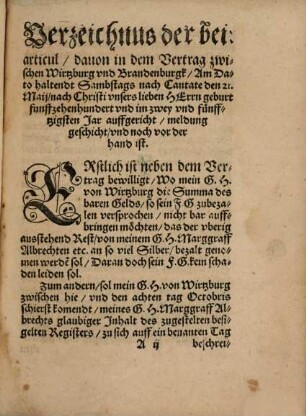 Verzeichnus der bei:
articul / dauon in dem Vertrag zwi-
schen Wirtzburg vnd Brandenburgk / Am Da-
to haltendt Sambstags nach Cantate den 21.
Maij / nach Christi vnsers lieben HErrn geburt
funffzehenhundert vnd in zwey vnd fünff-
tzigsten Jar auffgericht / meldung
geschicht / vnd noch vor der
hand ist.
ERstlich ist neben dem Ver-
trag bewilligt / Wo mein G. H.
von Wirtzburg die Summa des
baren Gelds / so sein F G zubeza-
len versprochen / nicht bar auff-
bringen möchten / das der vberig
ausstehend Rest / von meinem G. H. Marggraff
Albrechten etc. an so viel Silber / bezalt geno-
men werdē sol / Daran doch sein F. G. kein scha-
den leiden sol.
Zum andern / sol mein G. H. von Wirtzburg
zwischen hie / vnd den achten tag Octobris
schierst komendt / meines G. H. Marggraff Al-
brechts glaubiger Inhalt des zugestelten besi-
gelten Registers / zu sich auff ein benanten Tag
A ij beschrei-